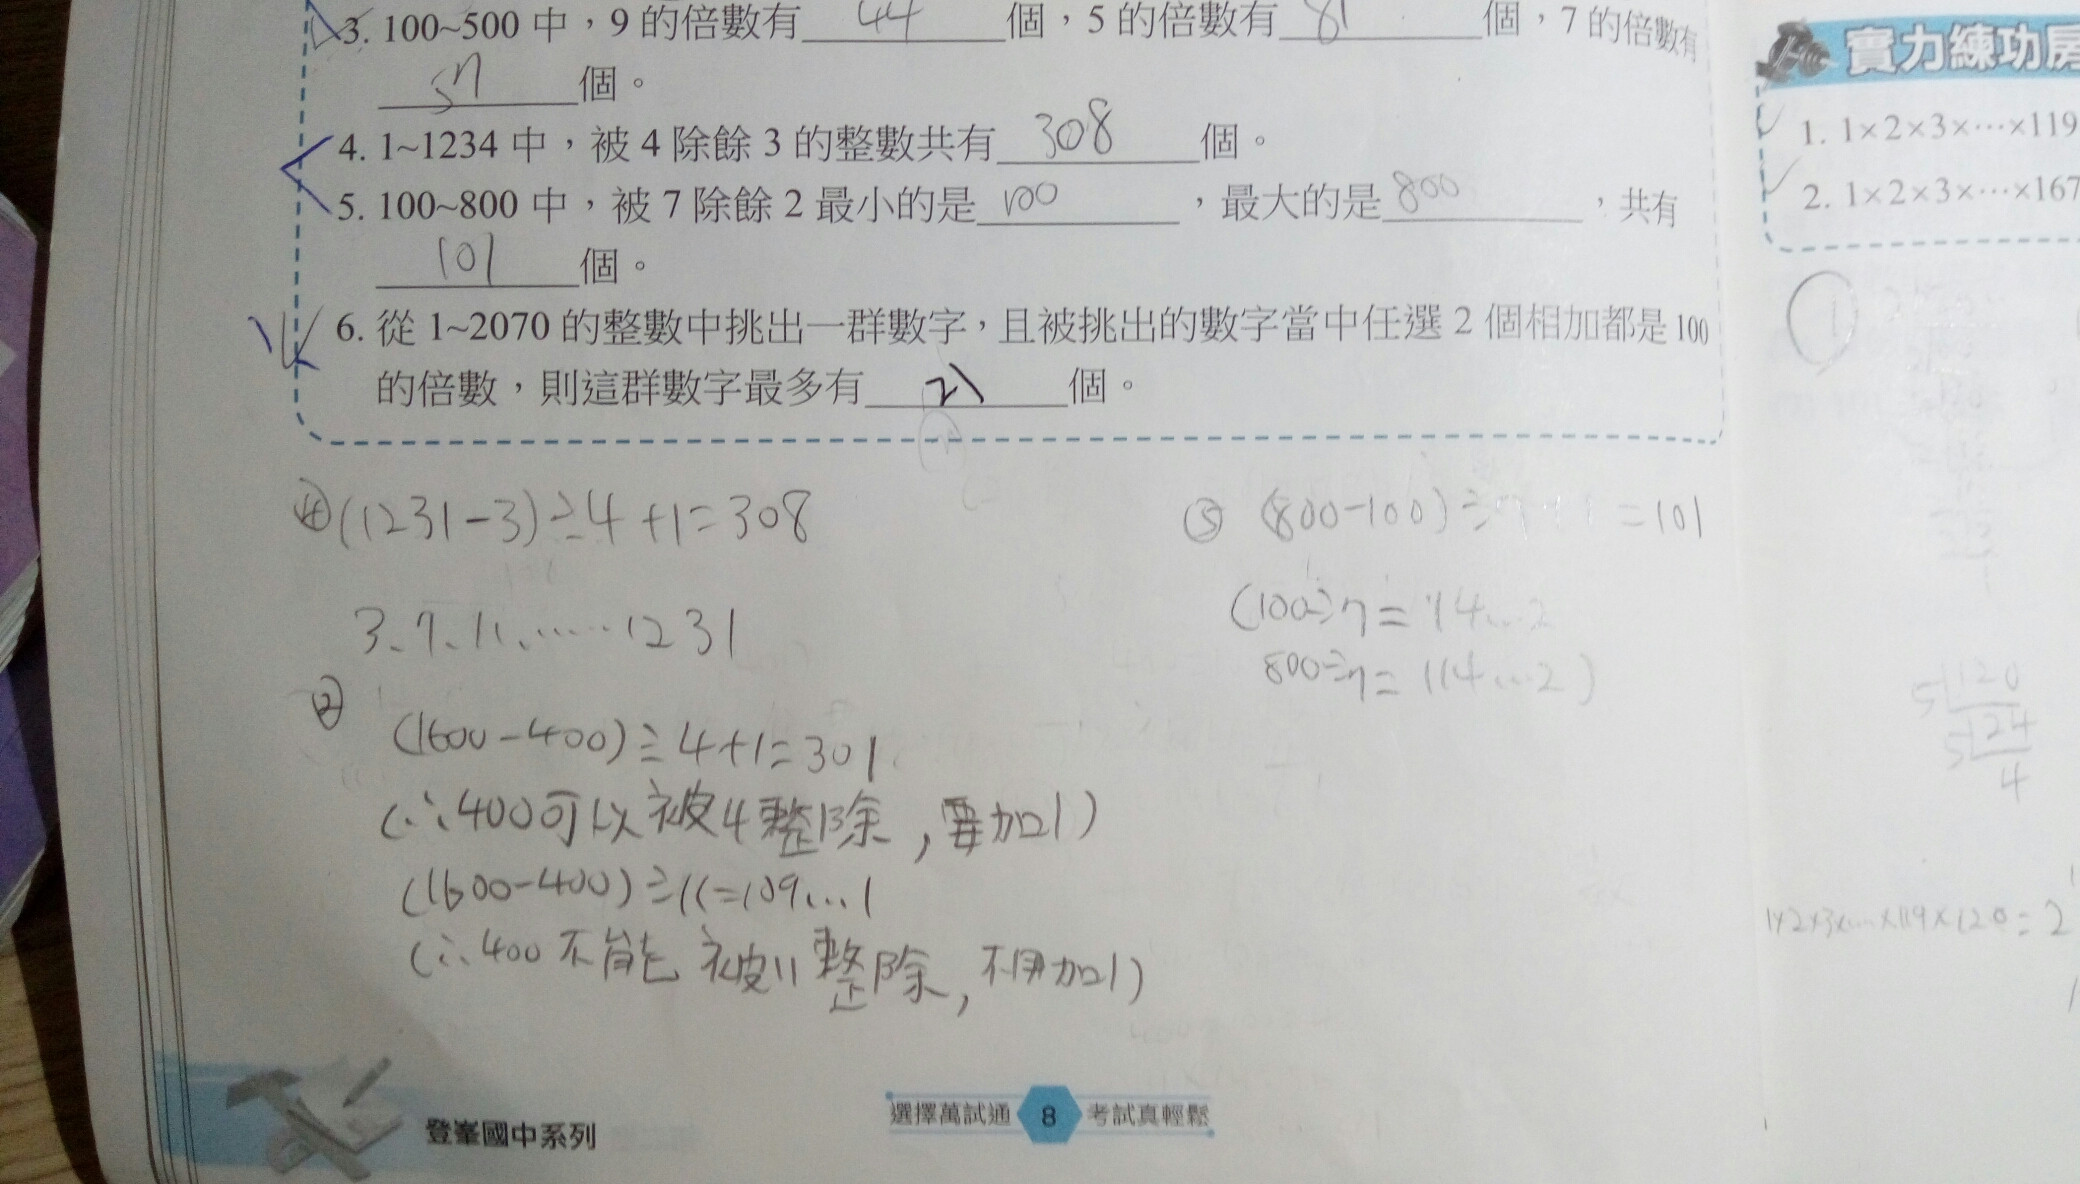 3. 100~500 中，9 的倍數有 44 個，5 的倍數有 81 個，7 的倍數有
57 個。
4. 1~1234 中，被 4 除餘 3 的整數共有 308 個。
5. 100~800 中，被 7 除餘 2 最小的是 100 ，最大的是 800 ，共有
101 個。
6. 從 1~2070 的整數中挑出一群數字，且被挑出的數字當中任選 2 個相加都是 100
的倍數，則這群數字最多有 21 個。
④(1231-3)÷4+1=308
3、7、11、……1231
②
(1600-400)÷4+1=301
(∵400可以被4整除，要加1)
(1600-400)÷11=109…1
(∵400不能被11整除，不用加1)
⑤ (800-100)÷7+1=101
(100÷7=14…2
800÷7=114…2)
登峯國中系列
選擇萬試通 8 考試真輕鬆
實力練功房
1. 1×2×3×…×119
2. 1×2×3×…×167
①
5 120
5 24
4
1×2×3×…×119×120=2